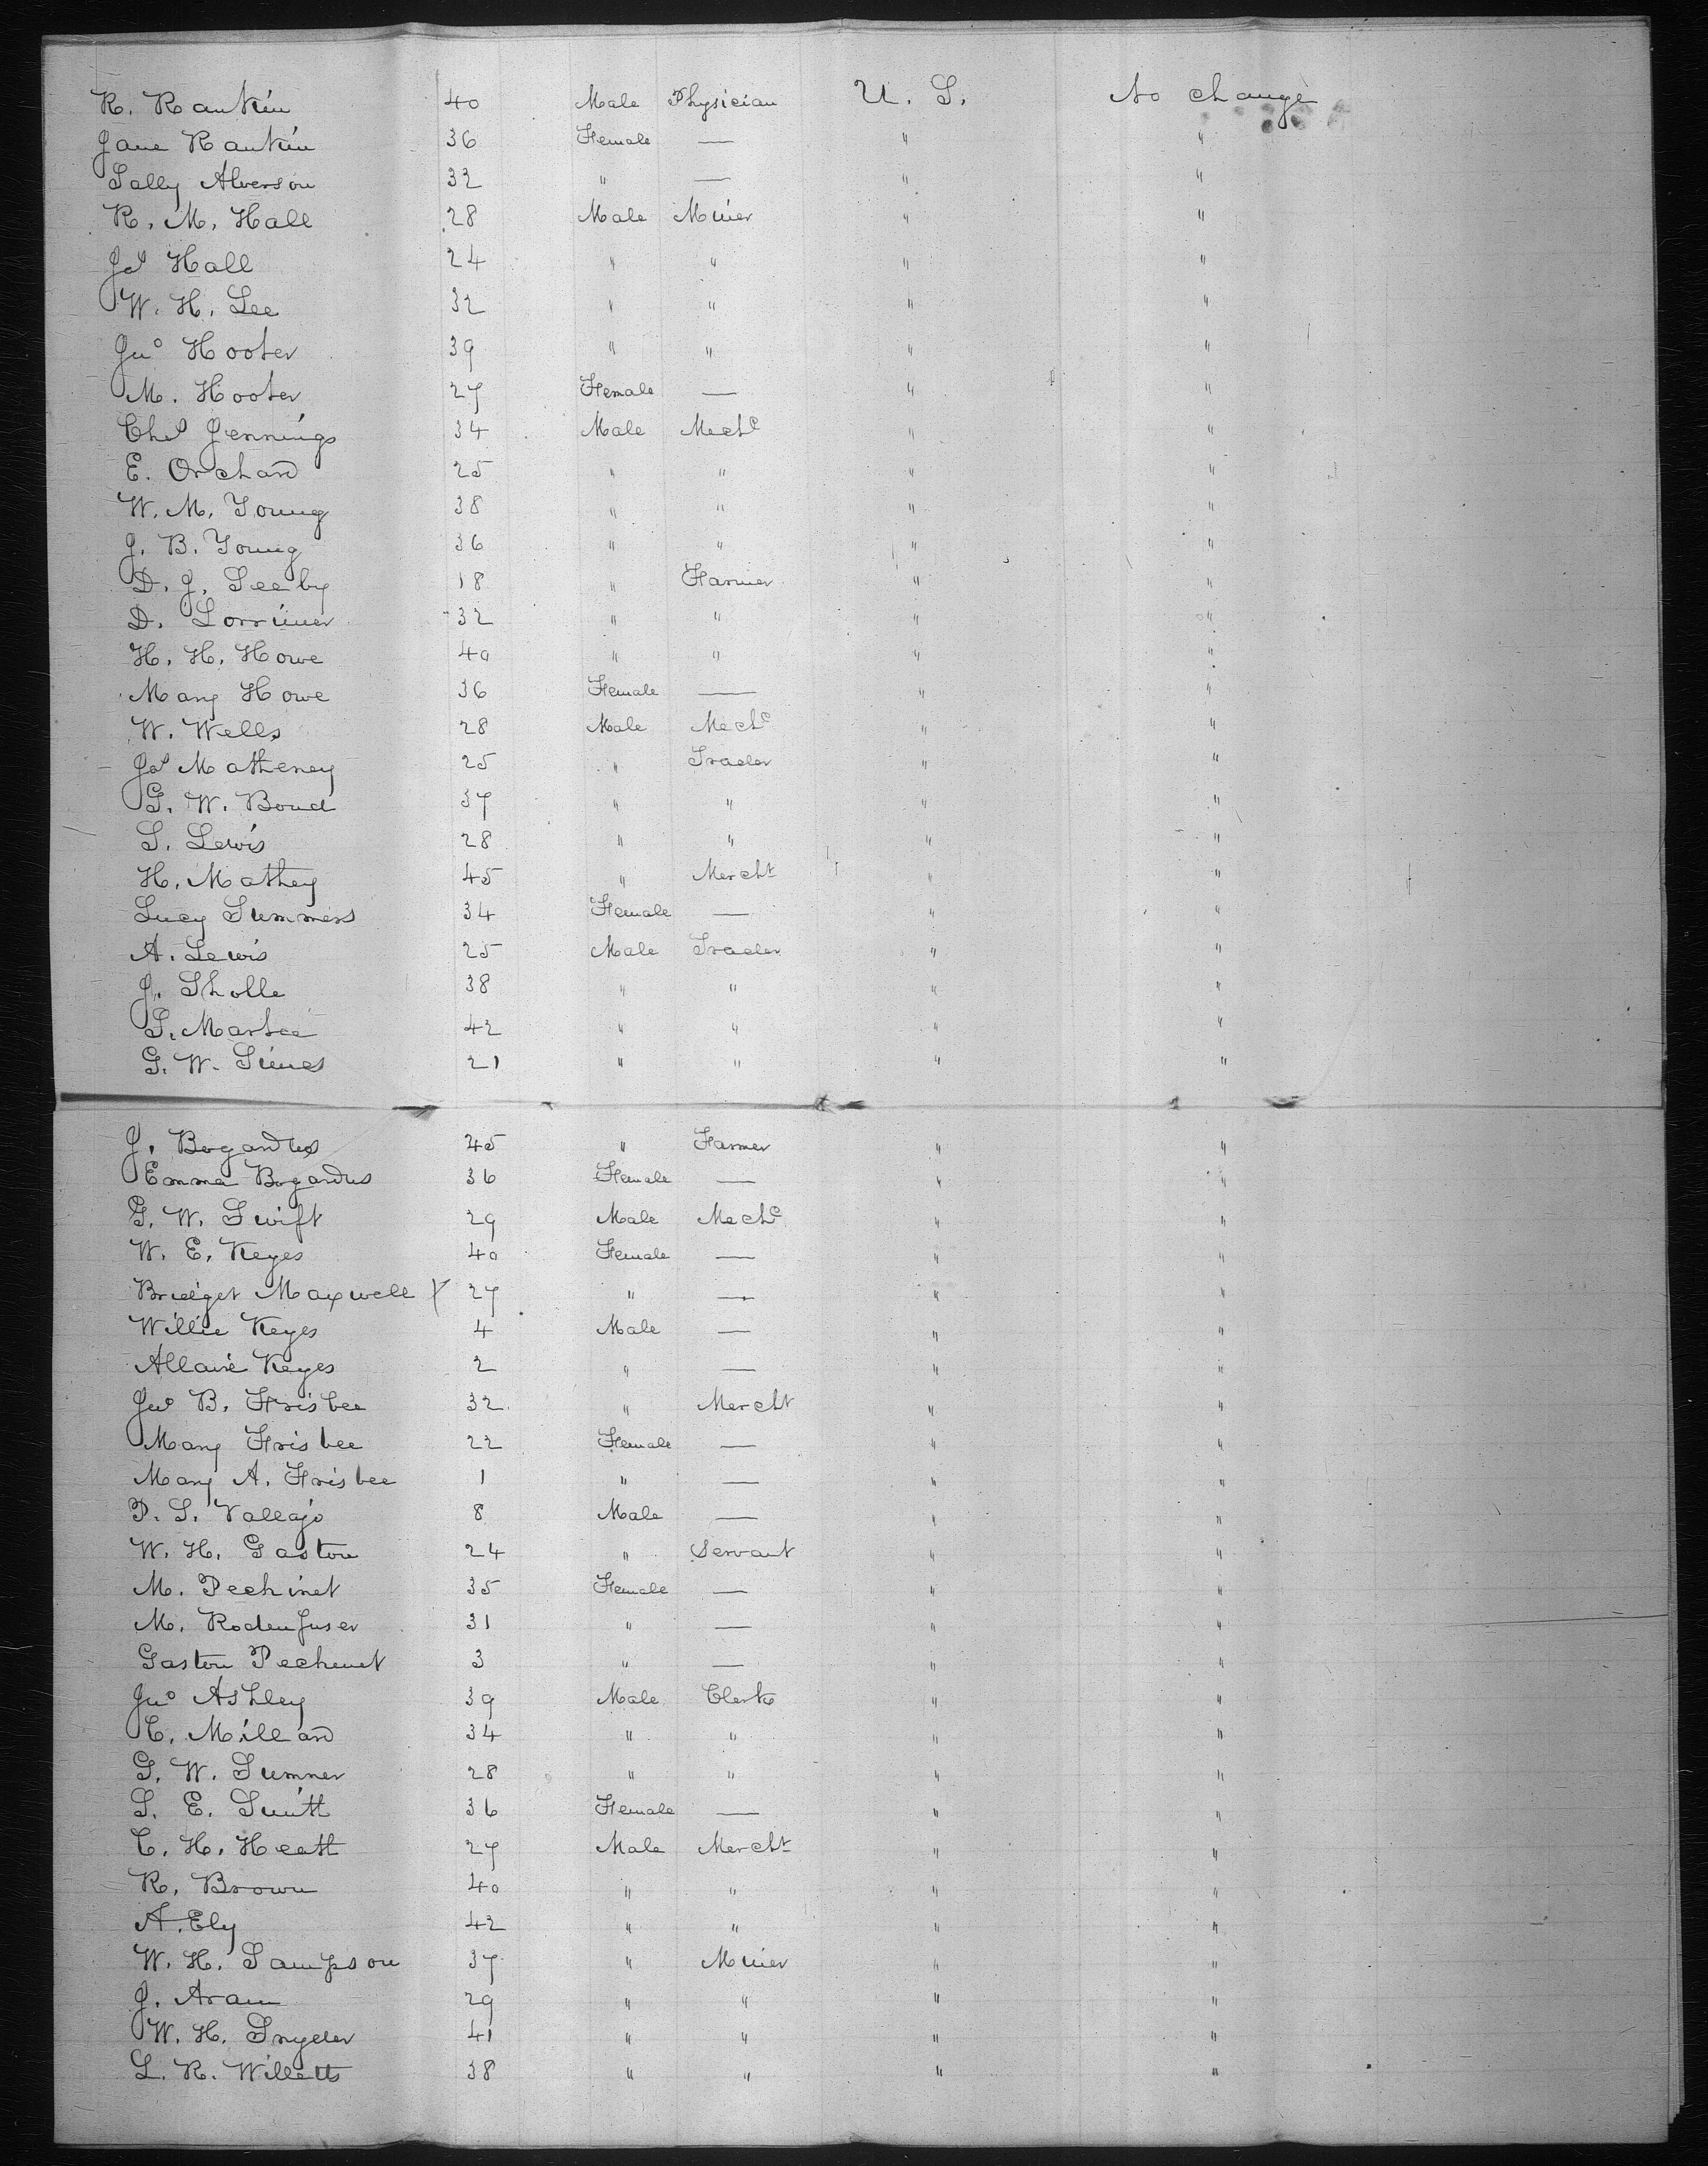 R. Rankin 40 Male Physician U. S. No change
Jane Rankin 36 Female — " "
Sally Alverson 32 " — " "
R. M. Hall 28 Male Miner " "
Jas Hall 24 " " " "
W. H. Lee 32 " " " "
Jno Hooter 39 " " " "
M. Hooter 27 Female — " "
Chas Jennings 34 Male Mechc " "
E. Orchard 25 " " " "
W. M. Young 38 " " " "
J. B. Young 36 " " " "
D. J. Seeby 18 " Farmer " "
D. Lorrimer 32 " " " "
H. H. Howe 40 " " " "
Mary Howe 36 Female — " "
W. Wells 28 Male Mechc " "
Jas Matheney 25 " Trader " "
G. W. Bond 37 " " " "
S. Lewis 28 " " " "
H. Mathey 45 " Mercht " "
Lucy Summers 34 Female — " "
A. Lewis 25 Male Trader " "
J. Sholle 38 " " " "
S. Martee 42 " " " "
G. W. Simes 21 " " " "
J. Bogardus 45 " Farmer " "
Emma Bogardus 36 Female — " "
G. W. Swift 29 Male Mechc " "
W. E. Keyes 40 Female — " "
Bridget Maxwell 27 " — " "
Willie Keyes 4 Male — " "
Allaire Keyes 2 " — " "
Jno B. Frisbee 32 " Mercht " "
Mary Frisbee 22 Female — " "
Mary A. Frisbee 1 " — " "
P. S. Vallajo 8 Male — " "
W. H. Gaston 24 " Servant " "
M. Pechinet 35 Female — " "
M. Rodenfuser 31 " — " "
Gaston Pechenet 3 " — " "
Jno Ashley 39 Male Clerk " "
C. Millard 34 " " " "
G. W. Sumner 28 " " " "
S. E. Smith 36 Female — " "
C. H. Heath 27 Male Mercht " "
R. Brown 40 " " " "
A. Ely 42 " " " "
W. H. Sampson 37 " Miner " "
J. Aram 29 " " " "
W. H. Snyder 41 " " " "
L. R. Willetts 38 " " " "